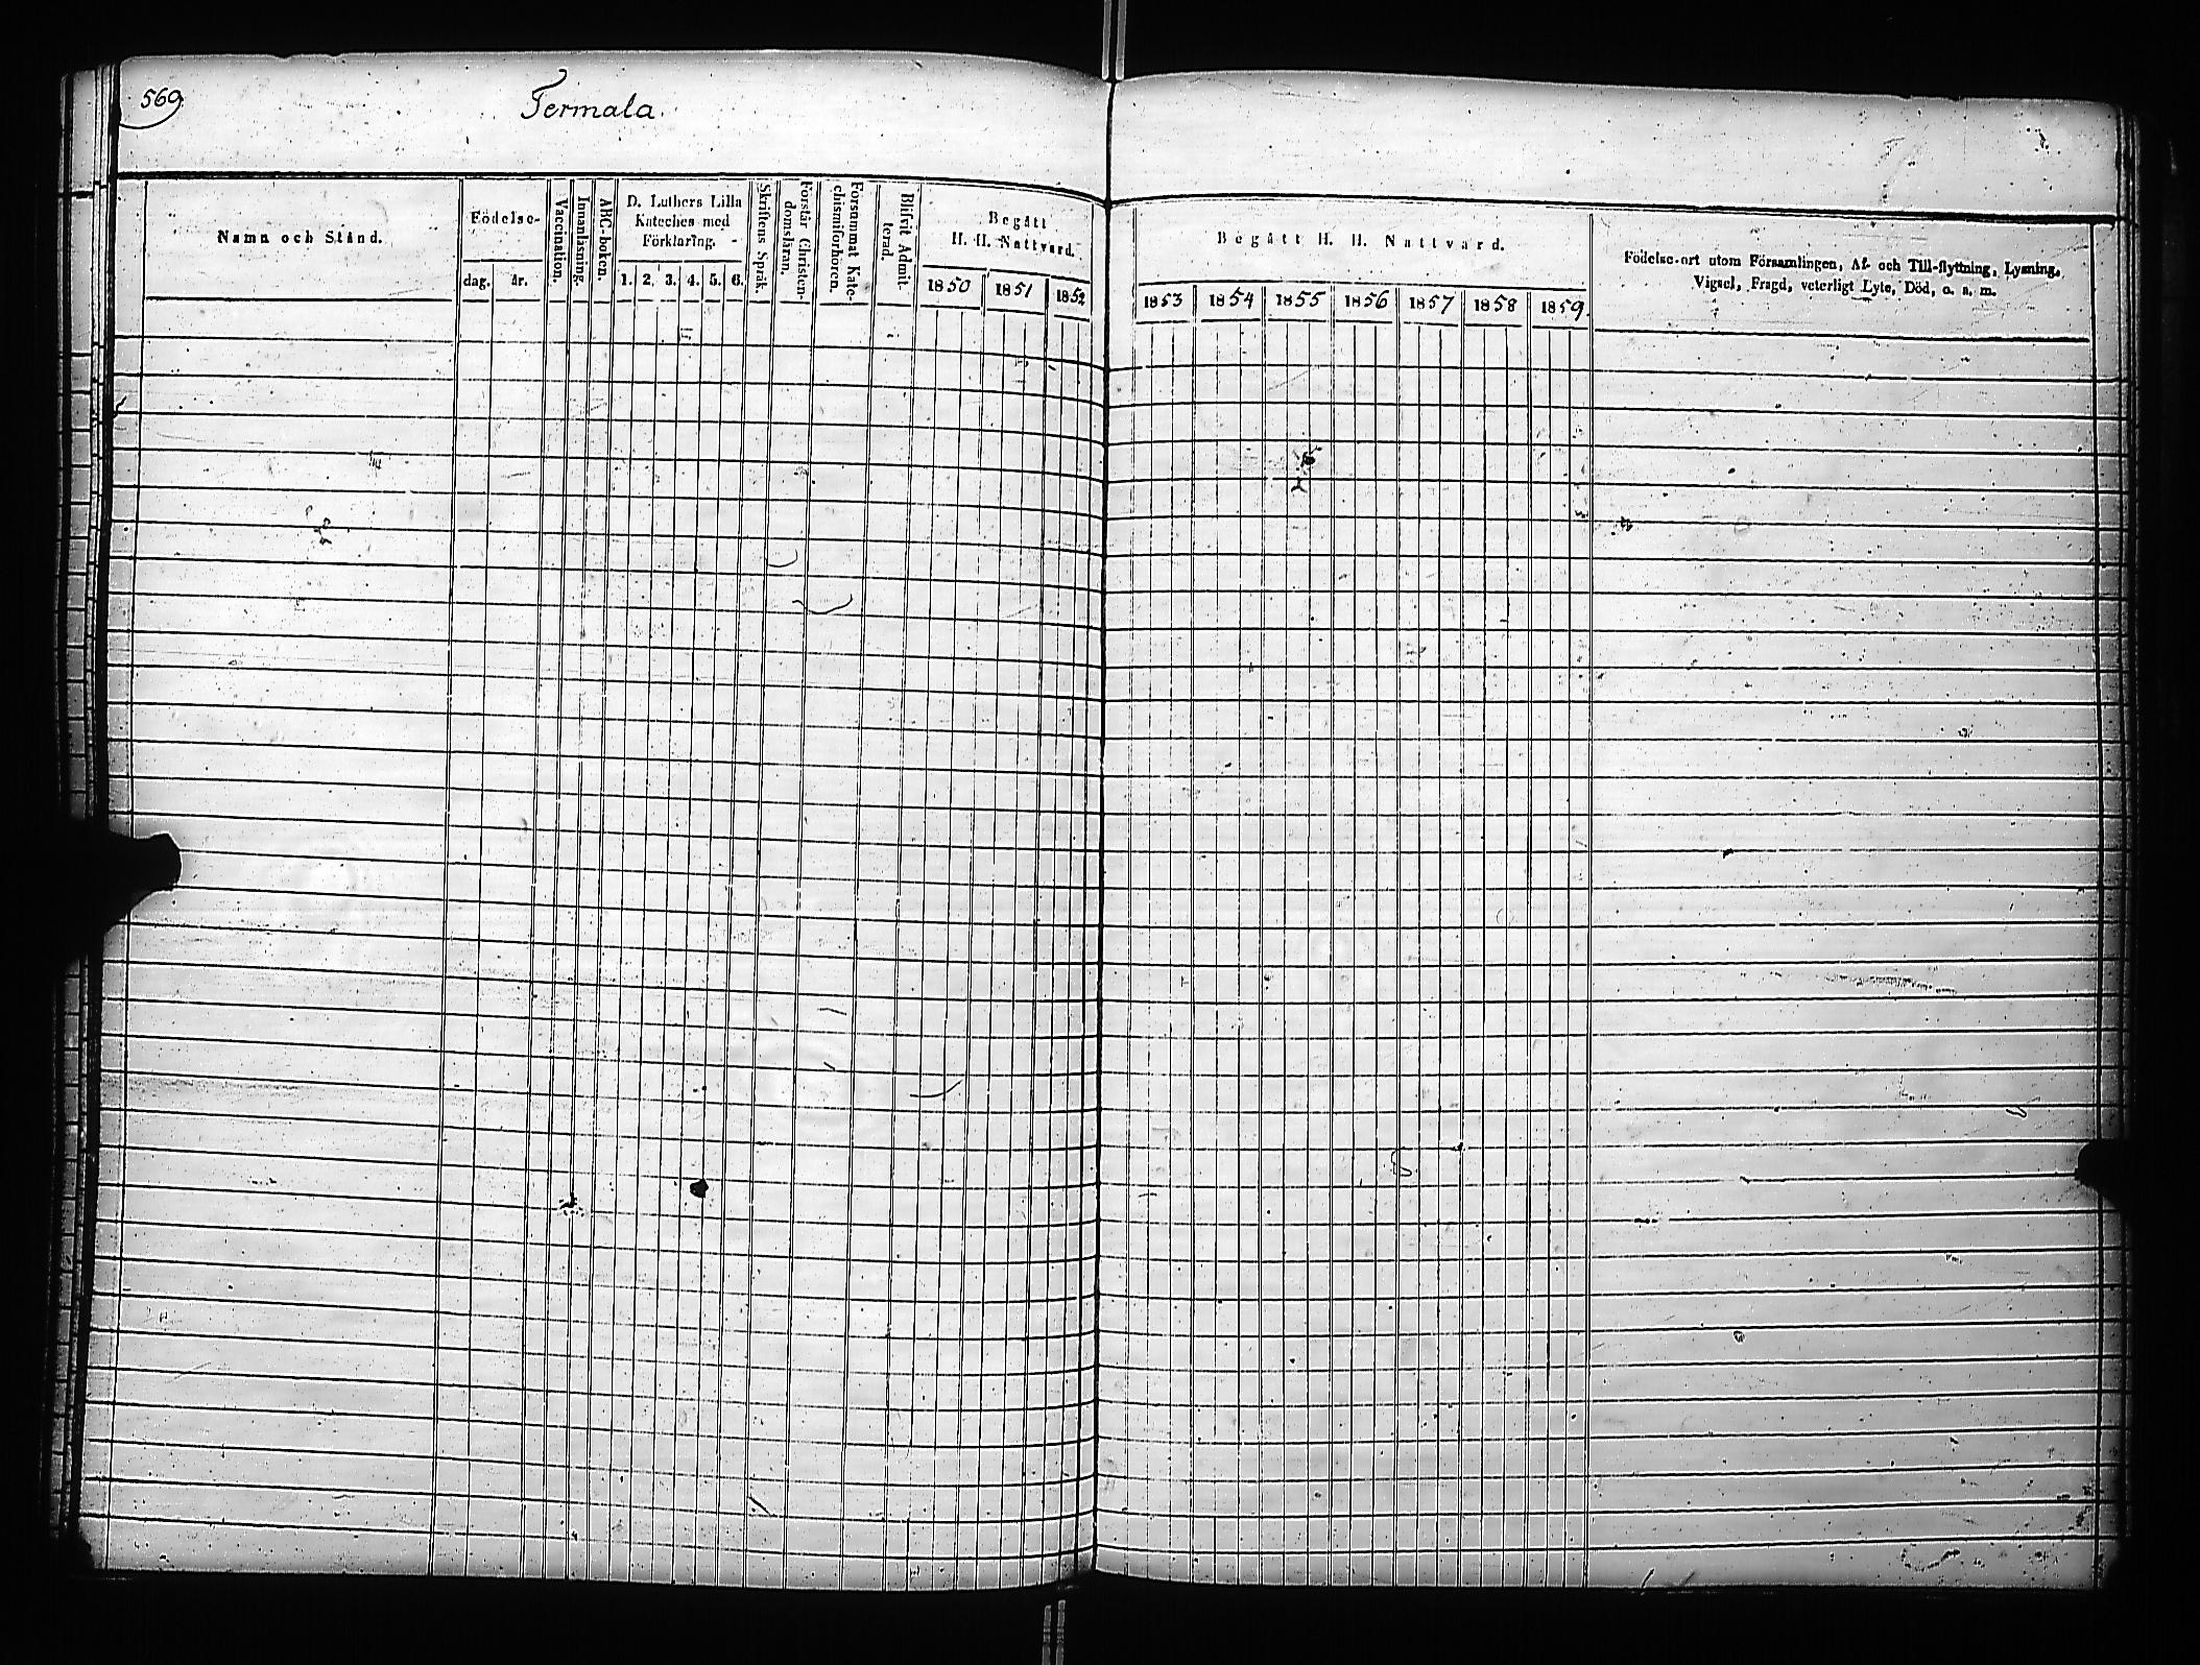 569
Termala.
Namn och Stånd.
Födelse-
dag.
år.
Vaccination.
Innanläsning.
ABC-boken.
D. Luthers Lilla
Kateches med
Förklaring.
1. 2. 3. 4. 5. 6.
Skriftens Språk.
Förstår Christen-
domsläran.
Försummat Kate-
chismiförhören.
Blifvit Admit-
terad.
Begått
H. H. Nattvard.
1850 1851 1852
Begått H. H. Nattvard.
1853 1854 1855 1856 1857 1858 1859
Födelse-ort utom Församlingen, Af- och Till-flyttning, Lysning,
Vigsel, Frägd, veterligt Lyte, Död, o. s. m.